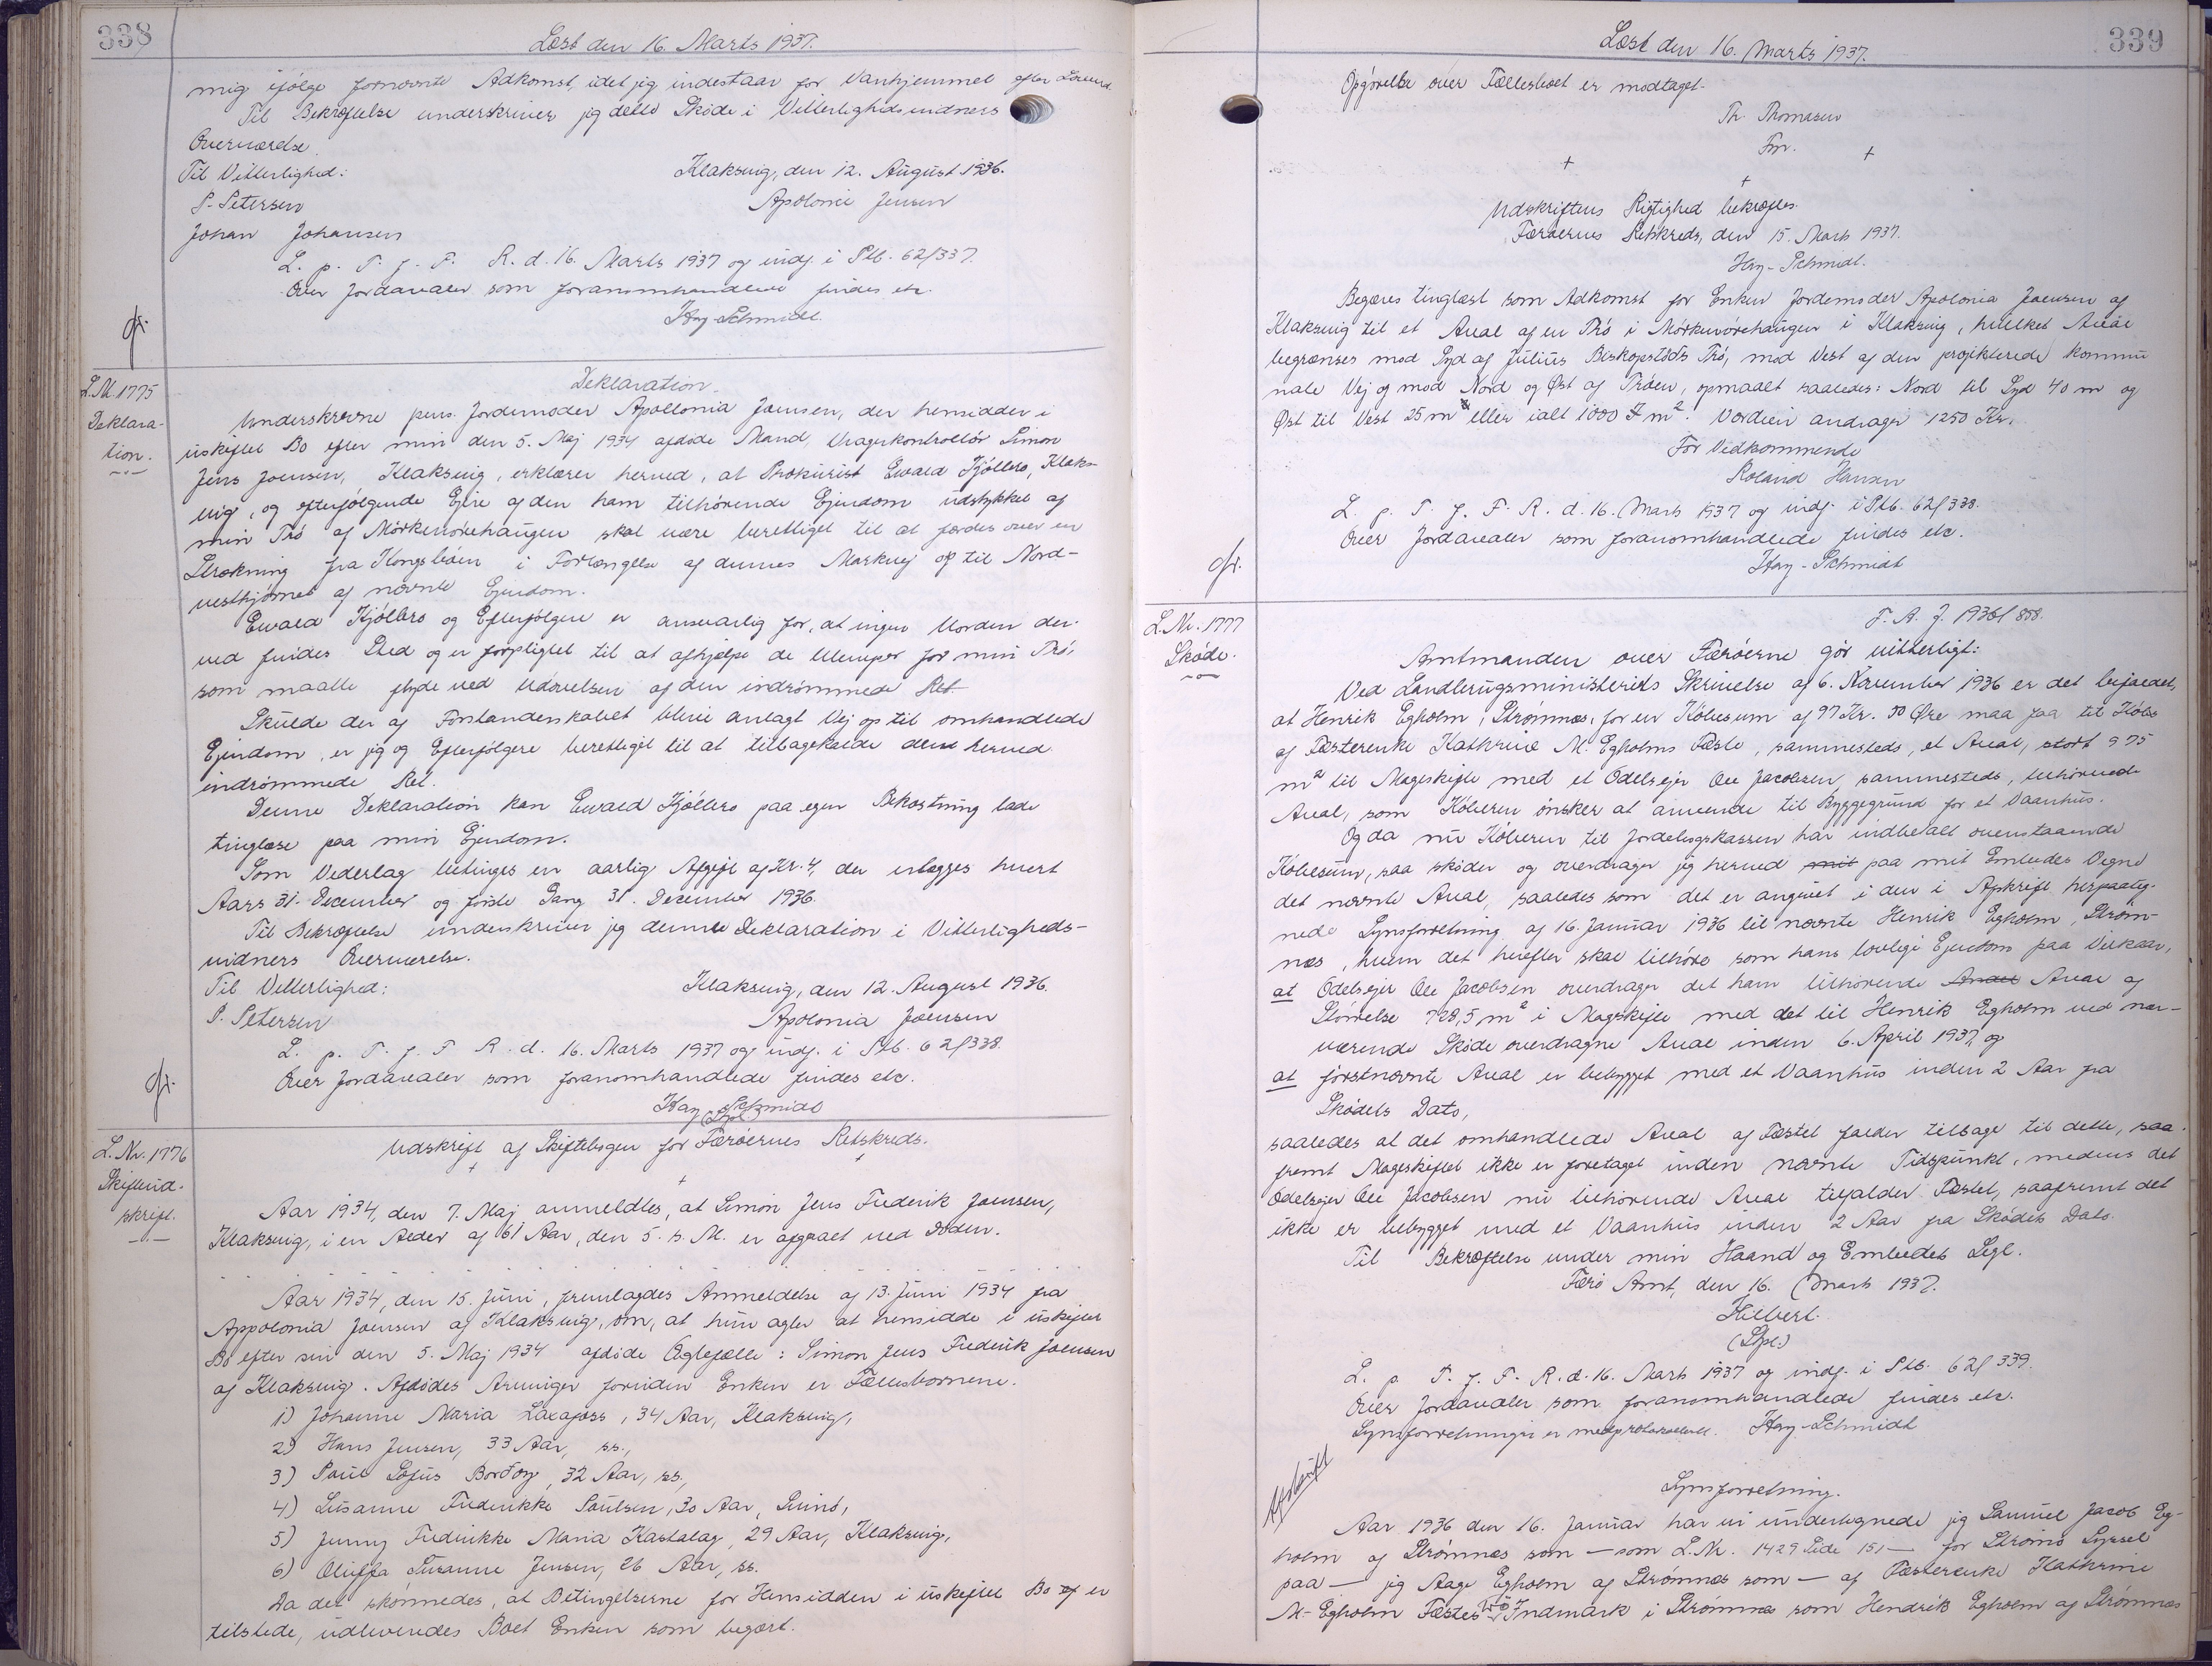 338
Læst den 16. Marts 1937.
mig ifølge fornævnte Adkomst, idet jeg indestaar for Vanhjemmel efter Loven.
Til Bekræftelse underskriver jeg dette Skøde i Vitterlighedsvidners
Overværelse.
Til Vitterlighed: Klaksvig, den 12. August 1936.
P. Petersen Apolonie Jensen
Johan Johansen
L. p. T. f. F. R. d. 16. Marts 1937 og indf. i Ptb. 62/337.
Over Jordarealer som foranomhandlede findes etc.
Hay-Schmidt.
Gf.
L.Nr. 1775
Deklara-
tion.
Deklaration.
Underskrevne pens. Jordemoder Apollonia Joensen, der hensidder i
uskiftet Bo efter min den 5. Maj 1934 afdøde Mand, Vragerkontrollør Simon
Jens Joensen, Klaksvig, erklærer herved, at Prokurist Ewald Kjølbro, Klaks-
vig, og efterfølgende Ejere af den ham tilhørende Ejendom udstykket af
min Trø af Mørkevørehaugen skal være berettiget til at færdes over en
Strækning fra Kongsbøen i Forlængelse af dennes Markvej op til Nord-
vesthjørnet af nævnte Ejendom.
Ewald Kjølbro og Efterfølgere er ansvarlig for, at ingen Uorden der-
ved finder Sted og er forpligtet til at afhjælpe de Ulemper for min Trø,
som maatte flyde ved Udøvelsen af den indrømmede Ret.
Skulde der af Forstanderskabet blive anlagt Vej op til omhandlede
Ejendom, er jeg og Efterfølgere berettiget til at tilbagekalde den herved
indrømmede Ret.
Denne Deklaration kan Ewald Kjølbro paa egen Bekostning lade
tinglæse paa min Ejendom.
Som Vederlag betinges en aarlig Afgift af Kr. 4, der erlægges hvert
Aars 31. December og første Gang 31. December 1936.
Til Bekræftelse underskriver jeg denne Deklaration i Vitterligheds-
vidners Overværelse.
Til Vitterlighed: Klaksvig, den 12. August 1936.
P. Petersen Apolonia Joensen
L. p. T. f. F. R. d. 16. Marts 1937 og indf. i Ptb. 62/338.
Over Jordarealer som foranomhandlede findes etc.
Hay Schmidt
Gf.
L.Nr. 1776
Skifteud-
skrift.
Udskrift af Skiftebogen for Færøernes Retskreds.
Aar 1934, den 7. Maj anmeldtes, at Simon Jens Frederik Joensen,
Klaksvig, i en Alder af 61 Aar, den 5. s. M. er afgaaet ved Døden.
Aar 1934, den 15. Juni, fremlagdes Anmeldelse af 13. Juni 1934 fra
Appolonia Joensen af Klaksvig, om, at hun agter at hensidde i uskiftet
Bo efter sin den 5. Maj 1934 afdøde Ægtefælle: Simon Jens Frederik Joensen
af Klaksvig. Afdødes Arvinger foruden Enken er Fællesbørnene.
1) Johanne Maria Laxafoss, 34 Aar, Klaksvig,
2) Hans Jensen, 33 Aar, ss.,
3) Poul Sofus Borðoy, 32 Aar, ss.,
4) Susanne Frederikke Poulsen, 30 Aar, Svinø,
5) Jenny Frederikke Maria Kastalag, 29 Aar, Klaksvig,
6) Oluffa Susanne Jensen, 26 Aar, ss.
Da det skønnedes, at Betingelserne for Hensidden i uskiftet Bo er
tilstede, udleveredes Boet Enken som begært.
339
Læst den 16. Marts 1937.
Opgørelse over Fællesboet er modtaget.
Th. Thomasen
Fm.
Udskriftens Rigtighed bekræftes.
Færøernes Retskreds, den 15. Marts 1937.
Hay-Schmidt.
Begæres tinglæst som Adkomst for Enken Jordemoder Apolonia Joensen af
Klaksvig til et Areal af en Trø i Mørkevørehaugen i Klaksvig, hvilket Areal
begrænses mod Syd af Julius Biskopstøðs Trø, mod Vest af den projekterede kommu
nale Vej og mod Nord og Øst af Trøen, opmaalt saaledes: Nord til Syd 40 m og
Øst til Vest 25 m eller ialt 1000 m². Værdien andrager 1250 Kr.
For Vedkommende
Roland Hansen
L. p. T. f. F. R. d. 16. Marts 1937 og indf. i Ptb. 62/338.
Over Jordarealer som foranomhandlede findes etc.
Hay-Schmidt
Gf.
L.Nr. 1777
Skøde.
F. A. J. 1936/858.
Amtmanden over Færøerne gør vitterligt:
Ved Landbrugsministeriets Skrivelse af 6. November 1936 er det bifaldet,
at Henrik Egholm, Strømnæs, for en Købesum af 97 Kr. 50 Øre maa faa til Købs
af Fæsterenke Kathrine M. Egholms Fæste, sammesteds, et Areal, stort 975
m² til Mageskifte med et Odelsejer Ole Jacobsen, sammesteds, tilhørende
Areal, som Køberen ønsker at anvende til Byggegrund for et Vaanhus.
Og da nu Køberen til Jordebogskassen har indbetalt ovenstaaende
Købesum, saa skøder og overdrager jeg herved paa mit Embedes Vegne
det nævnte Areal, saaledes som det er angivet i den i Afskrift herpaateg-
nede Synsforretning af 16. Januar 1936 til nævnte Henrik Egholm, Strøm-
næs, hvem det herefter skal tilhøre som hans lovlige Ejendom paa Vilkaar,
at Odelsejer Ole Jacobsen overdrager det ham tilhørende Areal af
Størrelse 728,5 m² i Mageskifte med det til Henrik Egholm ved nær-
værende Skøde overdragne Areal inden 6. April 1937, og
at førstnævnte Areal er bebygget med et Vaanhus inden 2 Aar fra
Skødets Dato,
saaledes at det omhandlede Areal af Fæstet falder tilbage til dette, saa-
fremt Mageskiftet ikke er foretaget inden nævnte Tidspunkt, medens det
Odelsejer Ole Jacobsen nu tilhørende Areal tilfalder Fæstet, saafremt det
ikke er bebygget med et Vaanhus inden 2 Aar fra Skødets Dato.
Til Bekræftelse under min Haand og Embedets Segl.
Færø Amt, den 16. Marts 1937.
Hilbert.
(Sgl.)
L. p. T. f. F. R. d. 16. Marts 1937 og indf. i Ptb. 62/339.
Over Jordarealer som foranomhandlede findes etc.
Synsforretningen er medprotokolleret. Hay-Schmidt
Afskrift
Synsforretning.
Aar 1936 den 16. Januar har vi undertegnede jeg Samuel Jacob Eg-
holm af Strømnæs som — som L.Nr. 1429 Side 151 — for Strømø Syssel
paa — jeg Aage Egholm af Strømnæs som — af Fæsterenke Kathrine
M. Egholm Fæstes Indmark i Strømnæs som Hendrik Egholm af Strømnæs